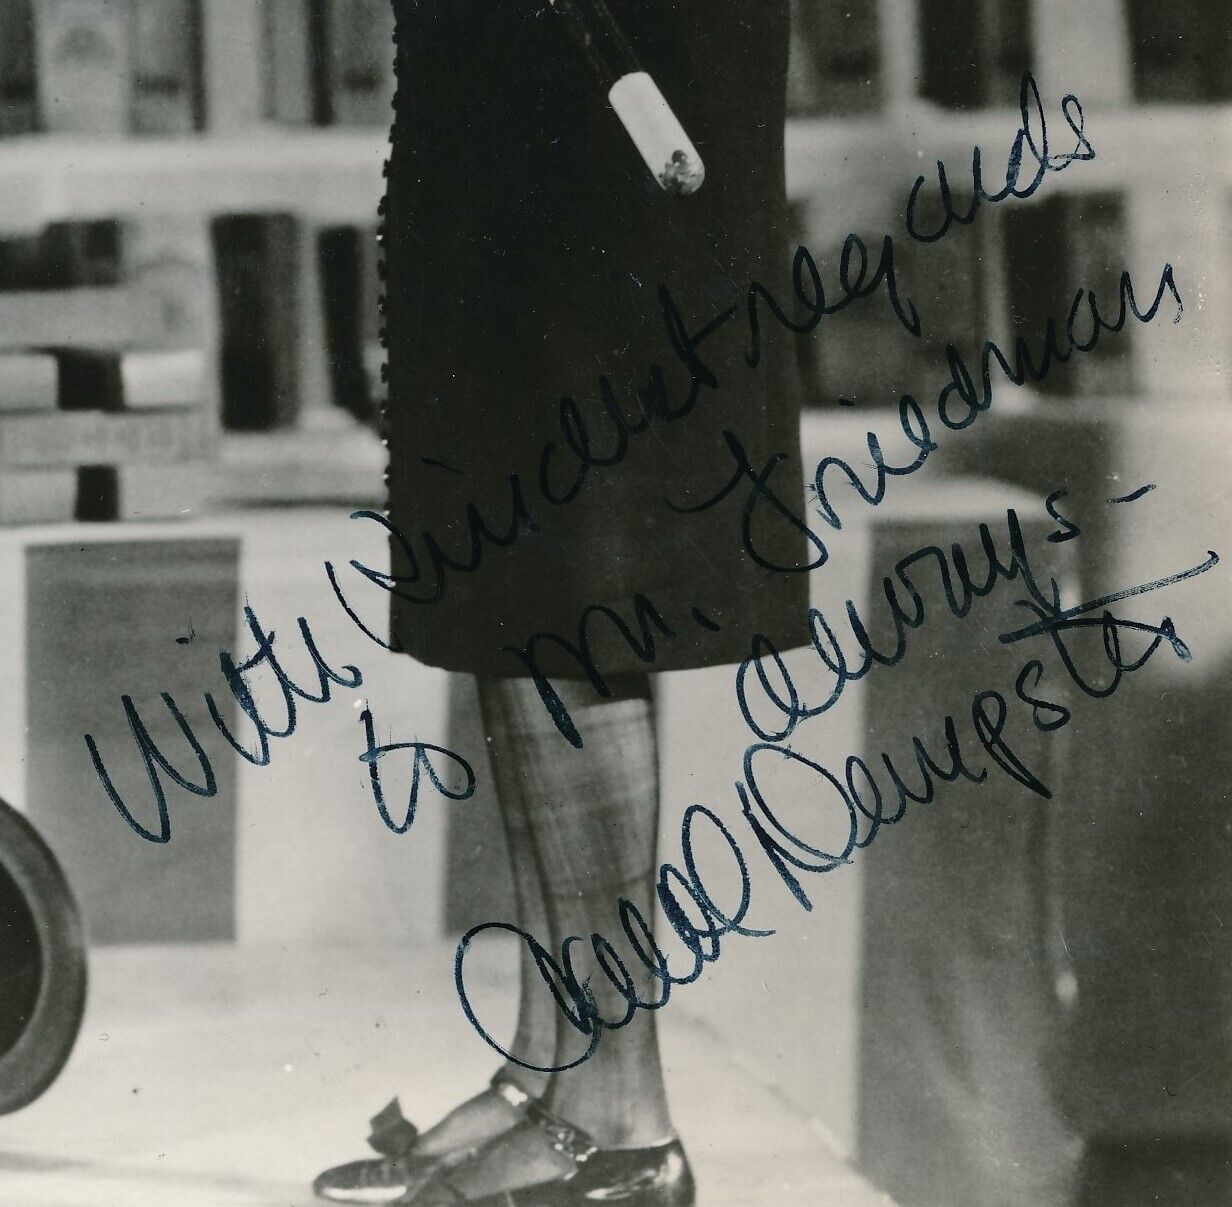 With Kindest regards
to Mr. Friedman
always -
Carol Dempster